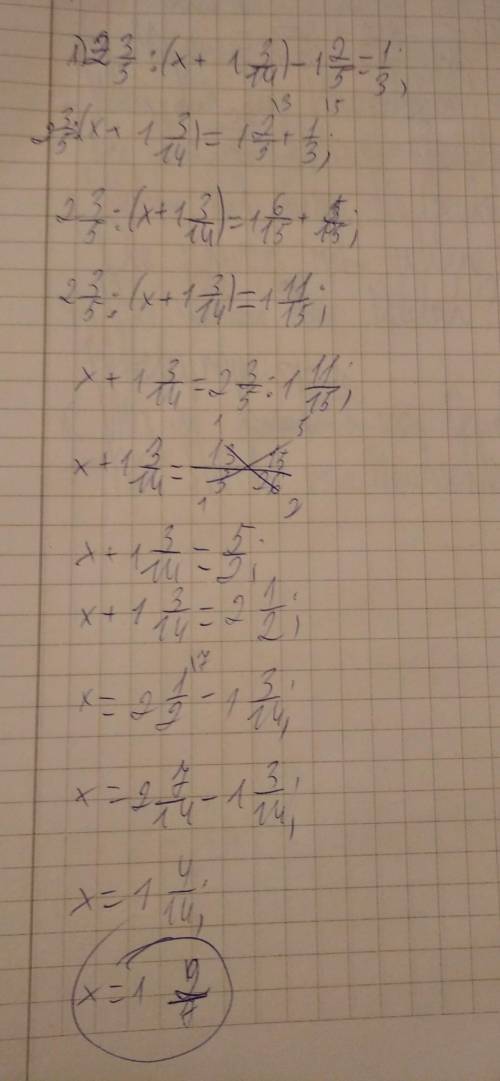 1) 2 3/5 : (x + 1 3/14) - 1 2/5 = 1/3;
2 3/5 : (x + 1 3/14) = 1 2/5 \3 + 1/3 \5;
2 3/5 : (x + 1 3/14) = 1 6/15 + 5/15;
2 3/5 : (x + 1 3/14) = 1 11/15;
x + 1 3/14 = 2 3/5 : 1 11/15;
x + 1 3/14 = 13/5 15/26 1 3 1 2
x + 1 3/14 = 5/2;
x + 1 3/14 = 2 1/2;
x = 2 1/2 \7 - 1 3/14;
x = 2 7/14 - 1 3/14;
x = 1 4/14;
x = 1 2/7